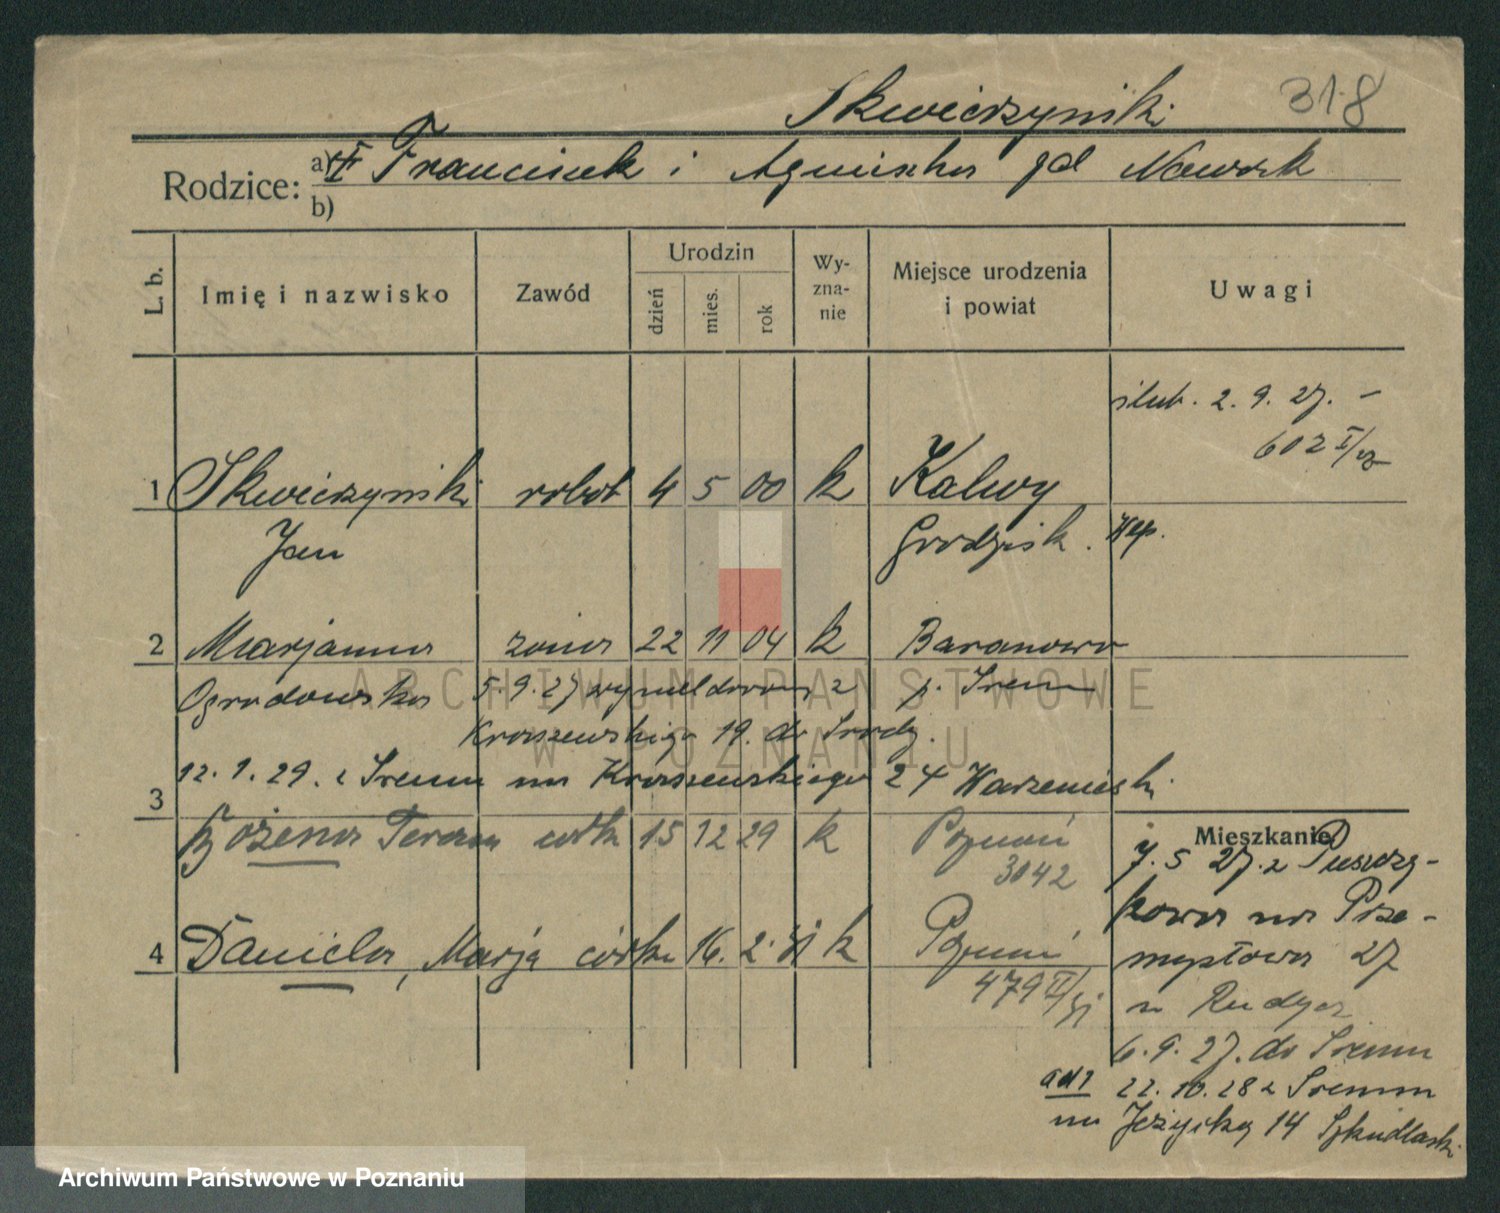 Skwierzyński 318
Rodzice: a) Franciszek i Agnieszka zd Nowak
b)
L. b. Imię i nazwisko Zawód Urodzin dzień mies. rok Wy-zna-nie Miejsce urodzenia i powiat Uwagi
ślub. 2. 9. 27. –
602 I/27
1 Skwierzyński robot 4 5 00 k Kalwy
Jan Grodzisk. Wlkp.
2 Marjanna żona 22 11 04 k Baranowo
Ogrodowska 5.9.27 wymeldowany z p. Śrem
Kraszewskiego 19. do Środy.
12.1.29. z Śremu na Kraszewskiego 24
3 Bożena Teresa córka 15 12 29 k Poznań
3042
4 Daniela, Marja córka 16. 2. 31 k Poznań
479 II/31
Mieszkanie
7. 5 27. z Puszczy-
kowa na Prze-
mysłowa 27
u
6. 9. 27. do Śremu
ad 1 22. 10. 28 z Śremu
na Jeżycką 14
ARCHIWUM PAŃSTWOWE
W POZNANIU
Archiwum Państwowe w Poznaniu